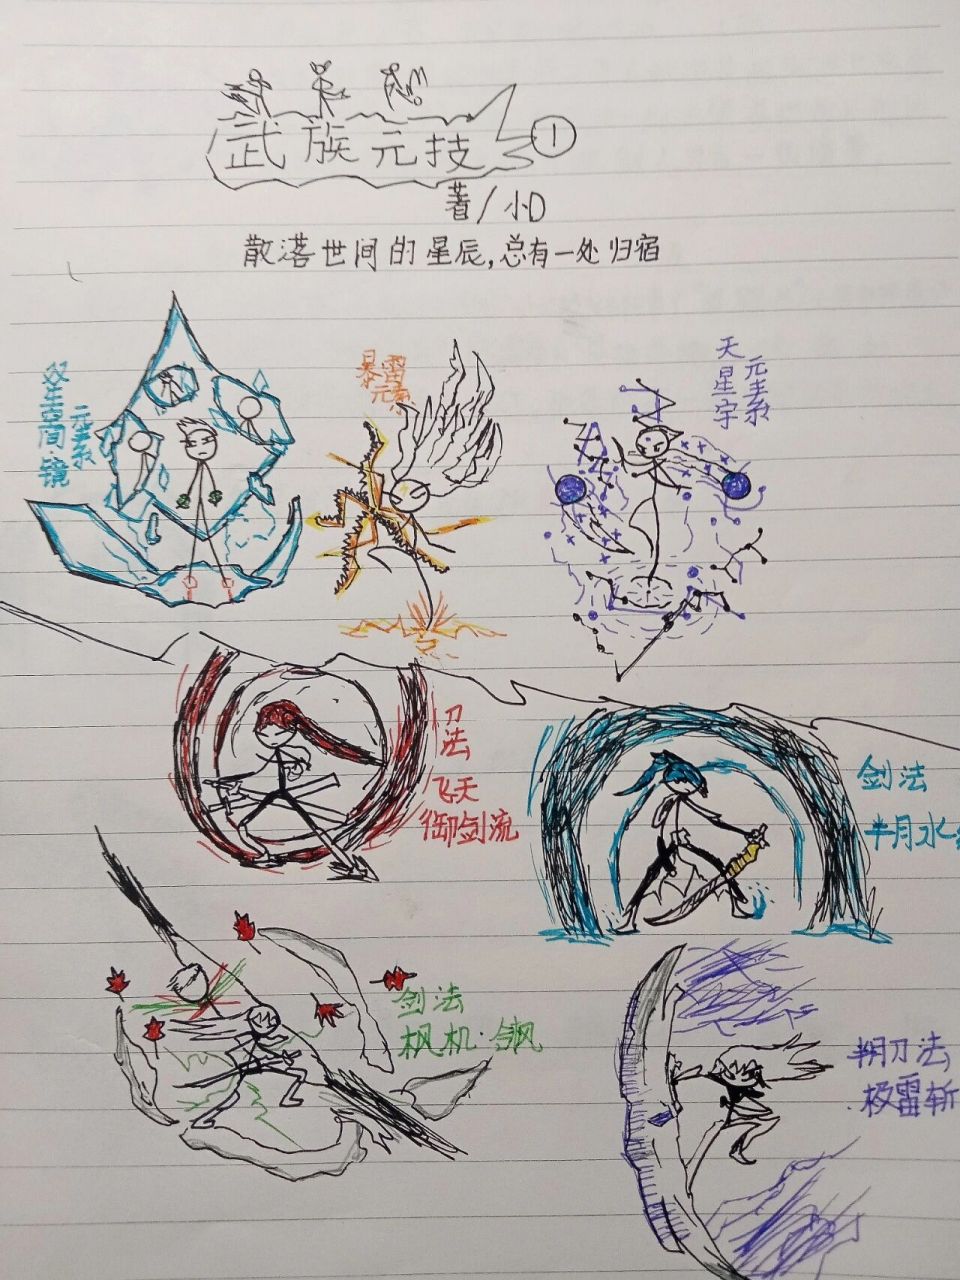 武族元技 ①
著/小D
散落世间的星辰,总有一处归宿
双生空间·镜
元素系
暴雷
元素系
天星宇
元素系
刀法
飞天
御剑流
剑法
半月水
剑法
枫机·
刀法
极雷斩